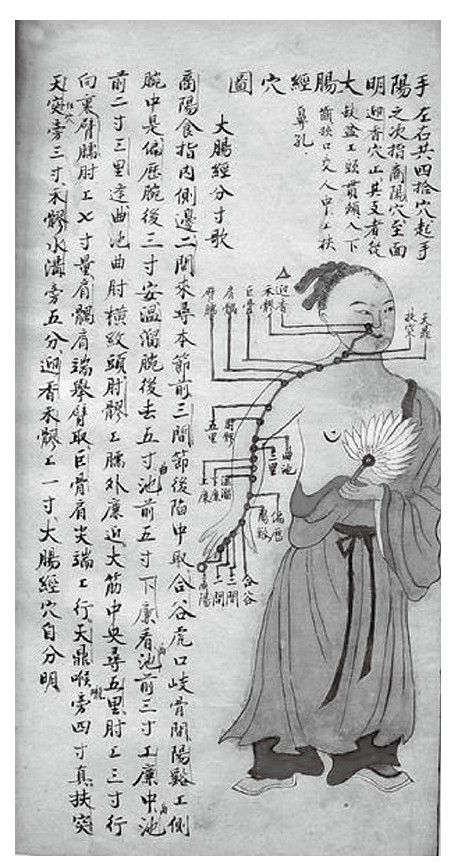 手陽明大腸經穴圖
左右共四拾穴起手
之次指商陽穴至面
迎香穴止其支者從
缺盆上頭貫頰入下
齒挾口交人中上挾
鼻孔
大腸經分寸歌
商陽食指內側邊二間來尋本節前三間節後陷中取合谷虎口歧骨間陽谿上側
腕中是偏歷腕後三寸安溫溜腕後去五寸池前五寸下廉看池前三寸上廉中池
前二寸三里逢曲池曲肘橫紋頭肘髎上臑外廉近大筋中央尋五里肘上三寸行
向裏臂臑肘上七寸量肩髃肩端舉臂取巨骨肩尖端上行天鼎喉旁四寸真扶突
天突旁三寸禾髎水溝旁五分迎香禾髎上一寸大腸經穴自分明
天鼎
扶突
迎香
禾髎
巨骨
肩髃
臂臑
肘髎
五里
曲池
三里
溫溜
下廉
上廉
偏歷
陽谿
合谷
三間
二間
商陽